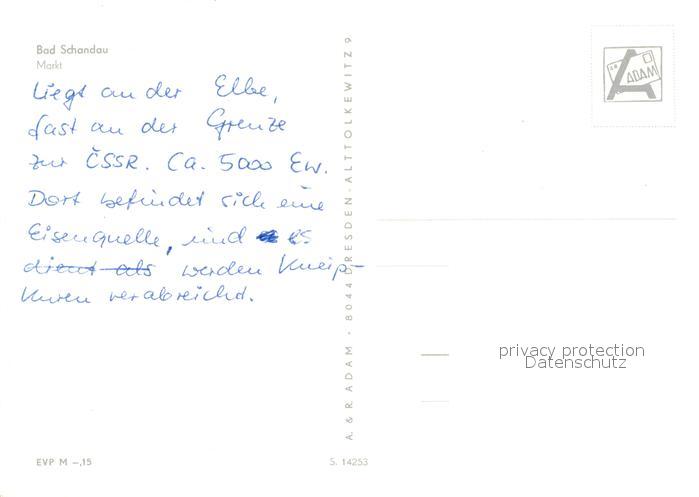 Bad Schandau
Markt
Liegt an der Elbe,
fast an der Grenze
zur ČSSR. Ca. 5000 Ew.
Dort befindet sich eine
Eisenquelle, und es
dient als werden Kneip-
Kuren verabreicht.
EVP M –,15
A. & R. ADAM · 8044 DRESSEN-ALTTOLKEWITZ 9
S. 14253
ADAM
privacy protection
Datenschutz